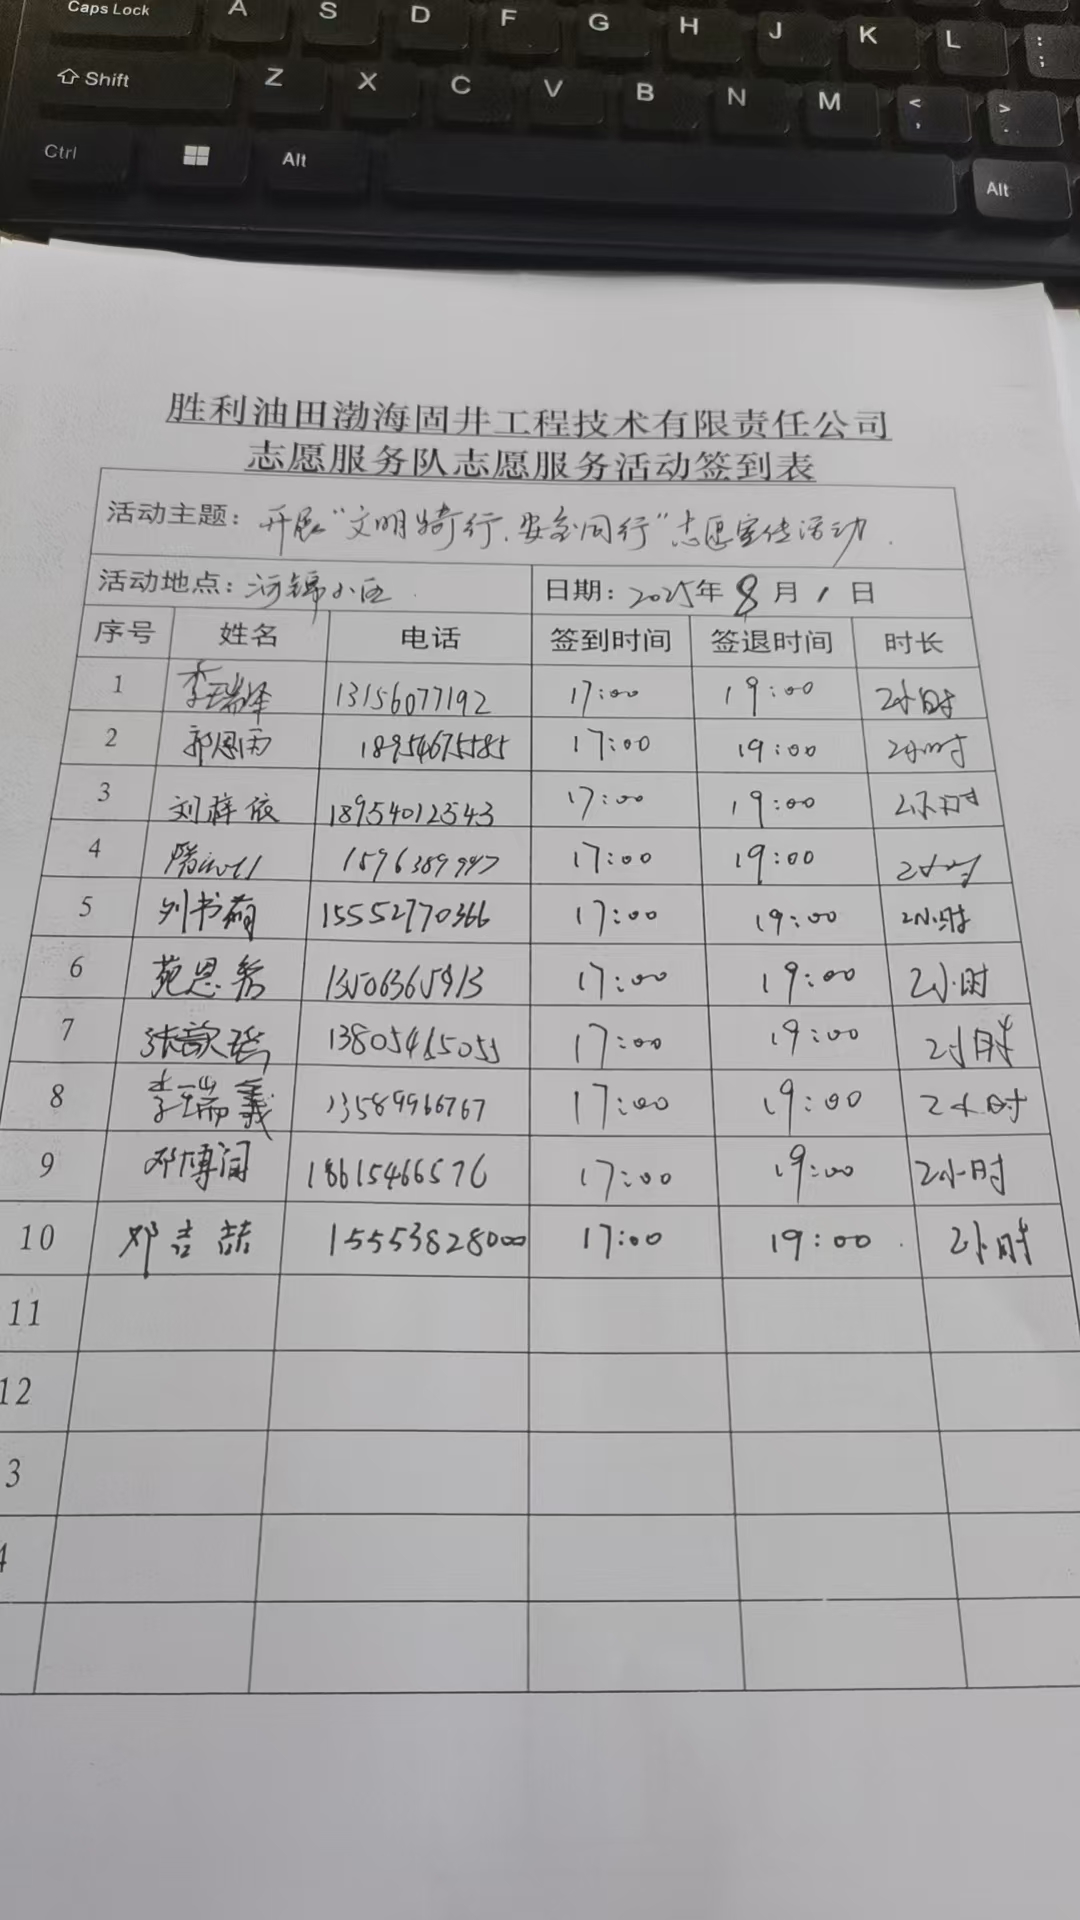 Caps Lock A S D F G H J K L : ;
Shift Z X C V B N M < , > .
Ctrl Alt Alt
胜利油田渤海固井工程技术有限责任公司
志愿服务队志愿服务活动签到表
活动主题：开展“文明骑行、安全同行”志愿宣传活动.
活动地点：河锦小区 日期：2025年8月1日
序号 姓名 电话 签到时间 签退时间 时长
1 李瑞泽 13156077192 17:00 19:00 2小时
2 郭恩雨 18954675585 17:00 19:00 2小时
3 刘梓依 18954012543 17:00 19:00 2小时
4 17:00 19:00 2小时
5 刘书萌 15552770366 17:00 19:00 2小时
6 苑恩希 13506365913 17:00 19:00 2小时
7 张歆瑶 13805465055 17:00 19:00 2小时
8 李瑞義 13589966767 17:00 19:00 2小时
9 邓博闻 18615466576 17:00 19:00 2小时
10 邓吉喆 15553828000 17:00 19:00 2小时
11
12
3
4